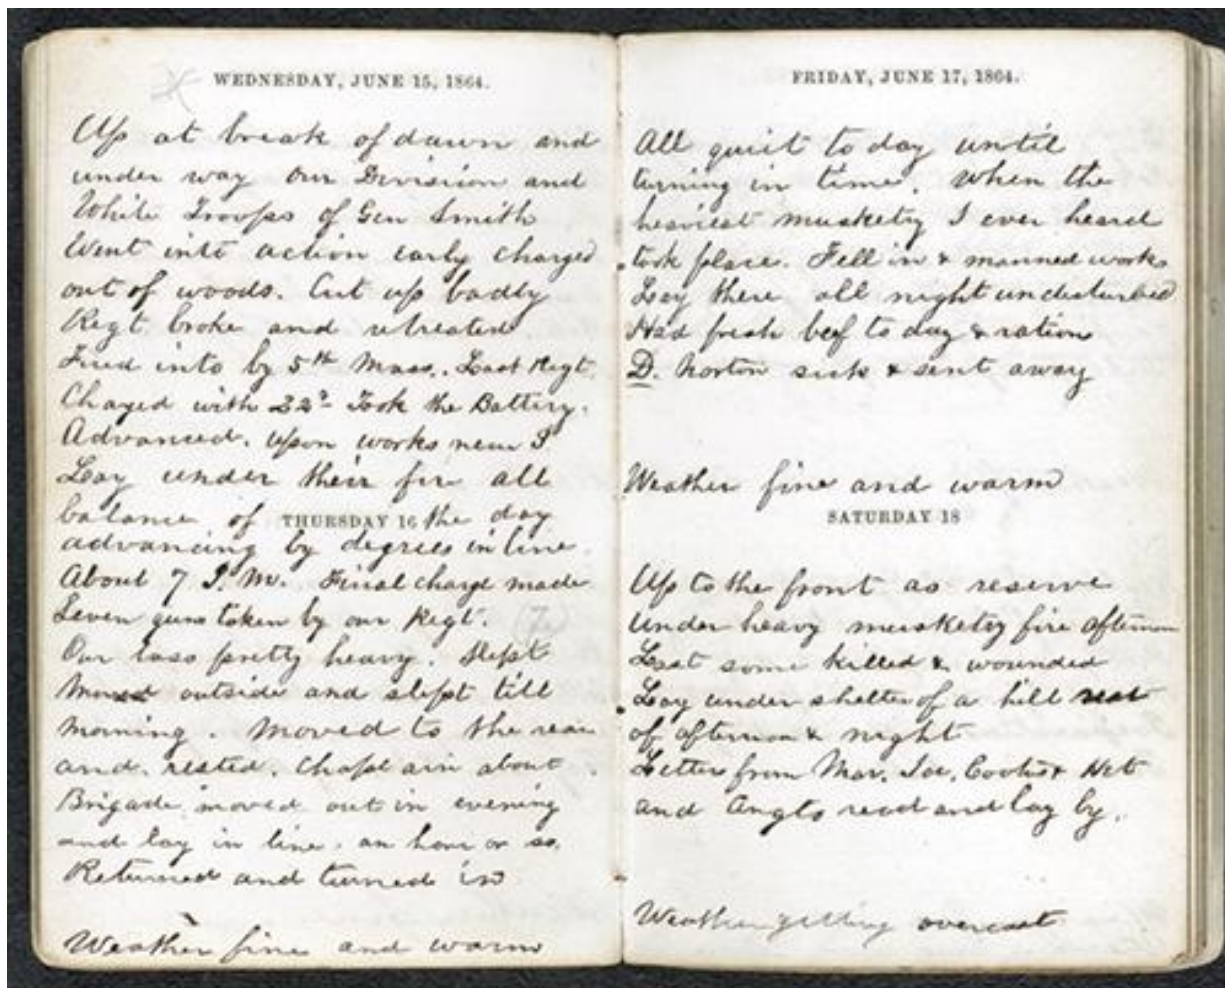 WEDNESDAY, JUNE 15, 1864.
Up at break of dawn and
under way Our Division and
White Troops of Gen Smith
Went into action early charged
out of woods. Cut up badly
Regt broke and retreated
Fired into by 5th Mass. Last Regt.
Charged with 22d Took the Battery.
Advanced. upon works near P.
Lay under their fire all
balance of the day
THURSDAY 16
advancing by degrees in line.
About 7 P.M. Final charge made
Seven guns taken by our Regt. (7)
Our loss pretty heavy. Slept
Moved outside and slept till
morning. Moved to the rear
and. rested. Chaplain about
Brigade moved out in evening
and lay in line. an hour or so.
Returned and turned in
Weather fine and warm
FRIDAY, JUNE 17, 1864.
All quiet to day until
turning in time. When the
heaviest musketry I ever heard
took place. Fell in & manned works
Lay there all night undisturbed
Had fresh beef to day & rations
D. Norton sick & sent away
Weather fine and warm
SATURDAY 18
Up to the front as reserve
Under heavy musketry fire afternoon
Lost some killed & wounded
Lay under shelter of a hill rest
of afternoon & night
Letters from Mar. Joe, & Het
and read and lay by.
Weather getting overcast